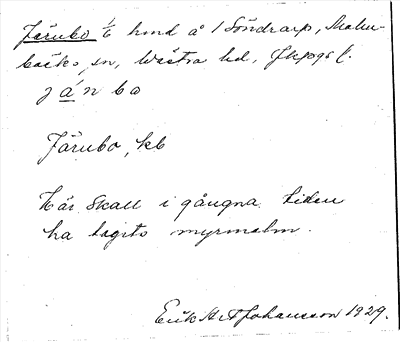 Järnbo ½ hmd å 1 Söndrarp, Malm-
bäcks sn, Västra hd, Jkpgs l.
jánba
Järnbo, kb
Här skall i gångna tiden
ha tagits myrmalm.
Erik H A Johansson 1929.